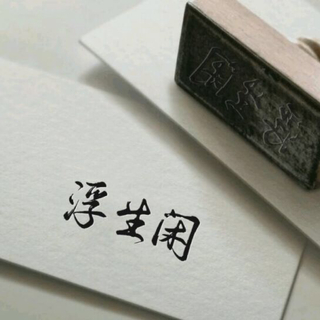 浮生闲